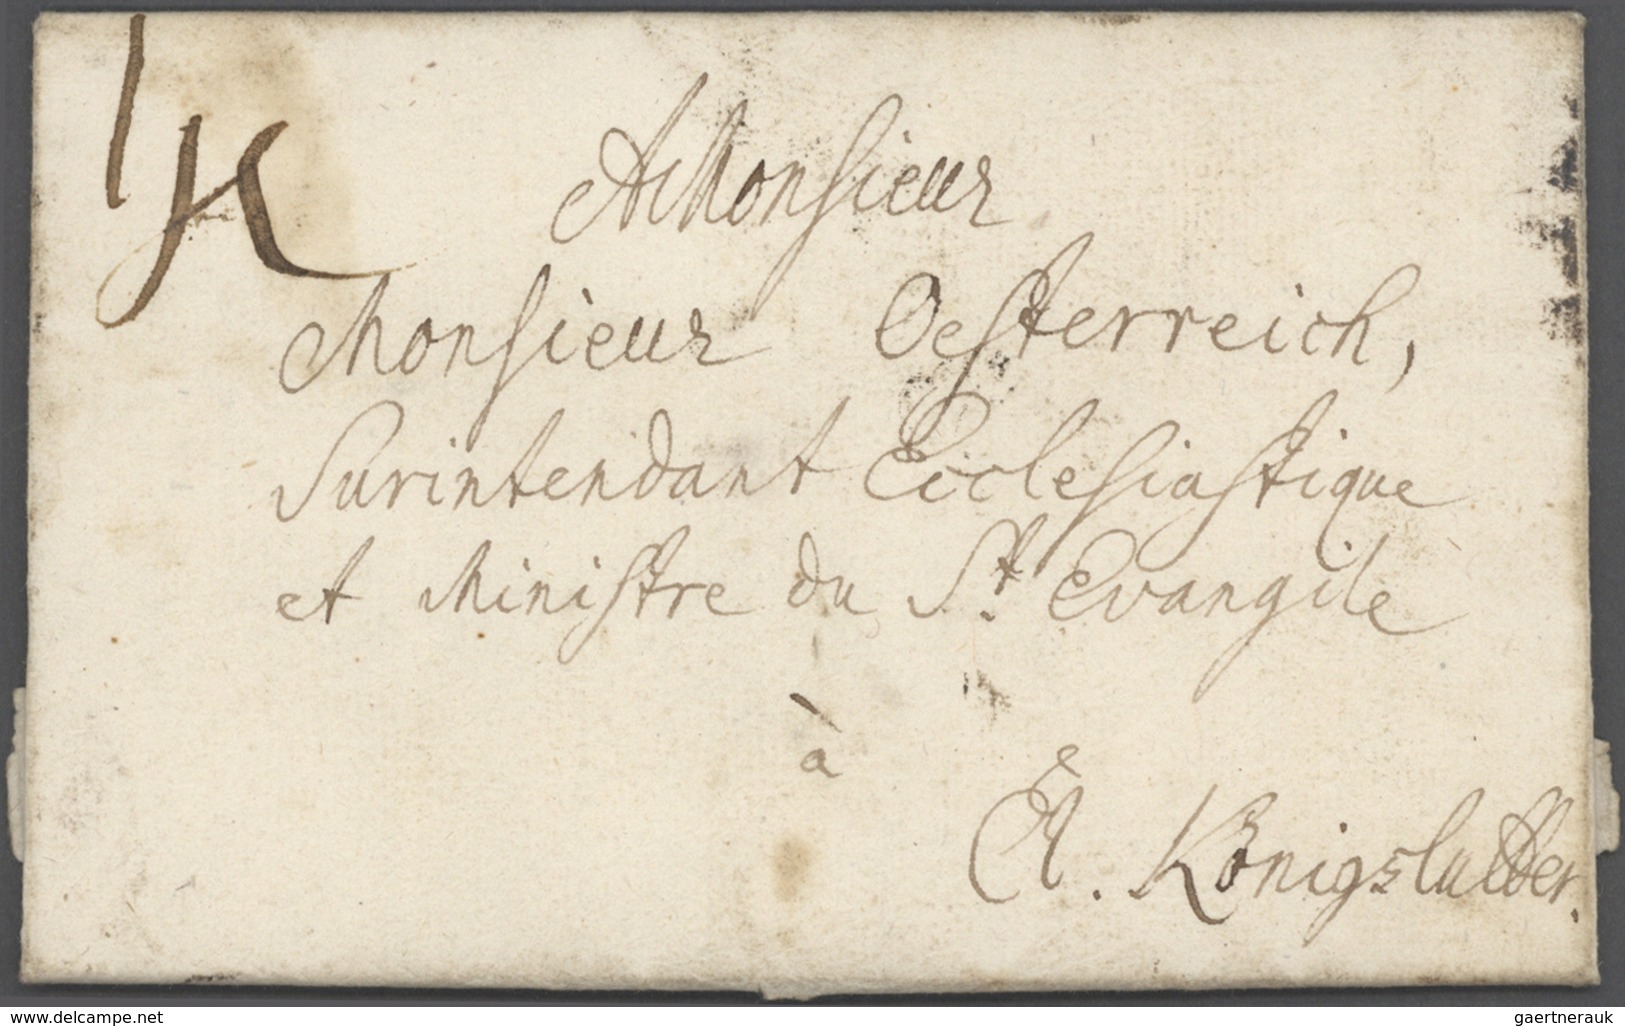 A Monsieur
Monsieur Oesterreich,
Surintendant Ecclesiastique
et Ministre du St. Evangile
à
Königslutter.
www.delcampe.net
gaertnerauk